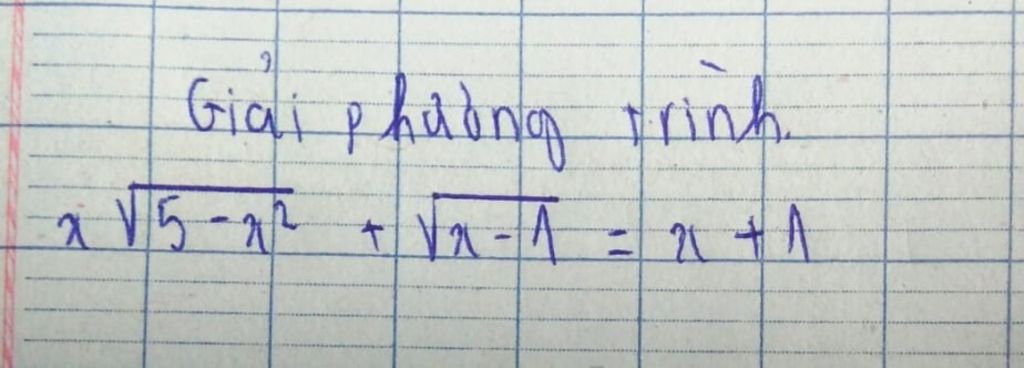 Giải phương trình.
x √(5 - x²) + √(x - 1) = x + 1